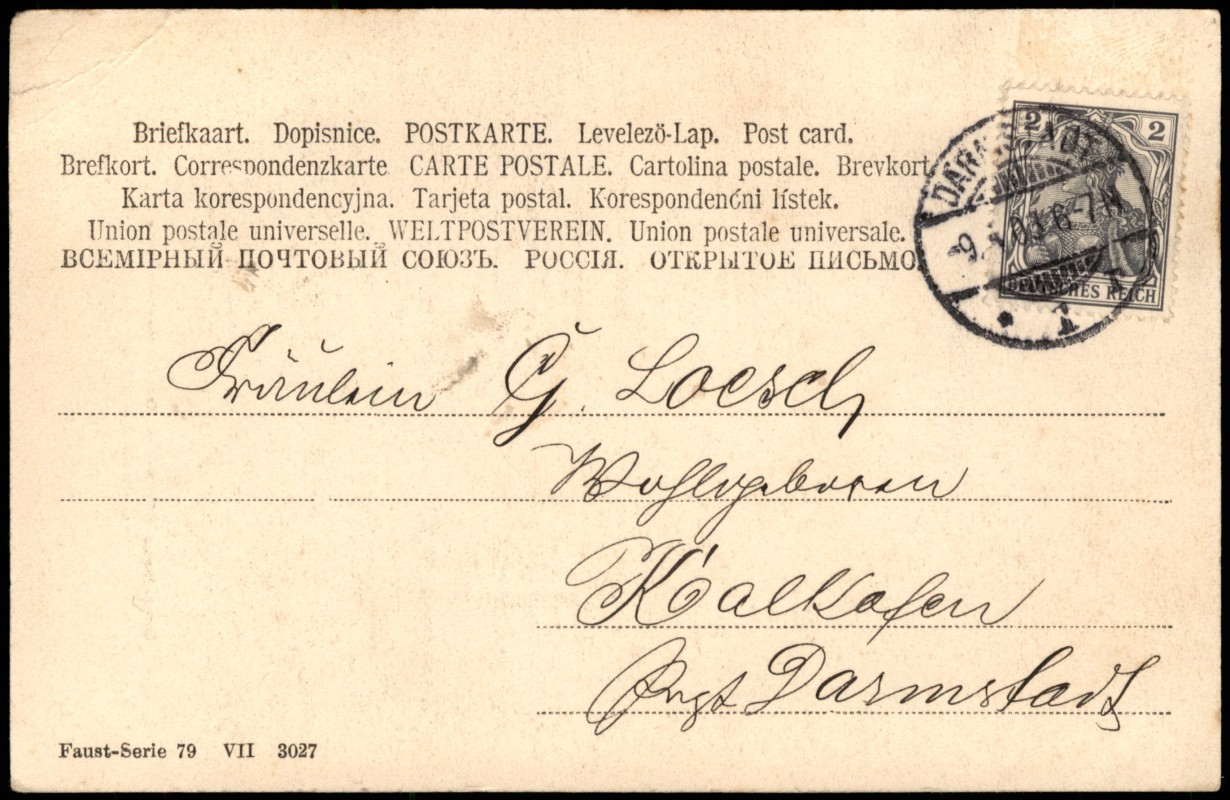 Briefkaart. Dopisnice. POSTKARTE. Levelezö-Lap. Post card.
Brefkort. Correspondenzkarte CARTE POSTALE. Cartolina postale. Brevkort
Karta korespondencyjna. Tarjeta postal. Korespondenćni lístek.
Union postale universelle. WELTPOSTVEREIN. Union postale universale.
ВСЕМІРНЫЙ ПОЧТОВЫЙ СОЮЗЪ. РОССІЯ. ОТКРЫТОЕ ПИСЬМО.
2 2
DEUTSCHES REICH
DARMSTADT
6-7 N
1
Fräulein G. Loesch
Wohlgeboren
Kalkofen
Darmstadt
Faust-Serie 79 VII 3027